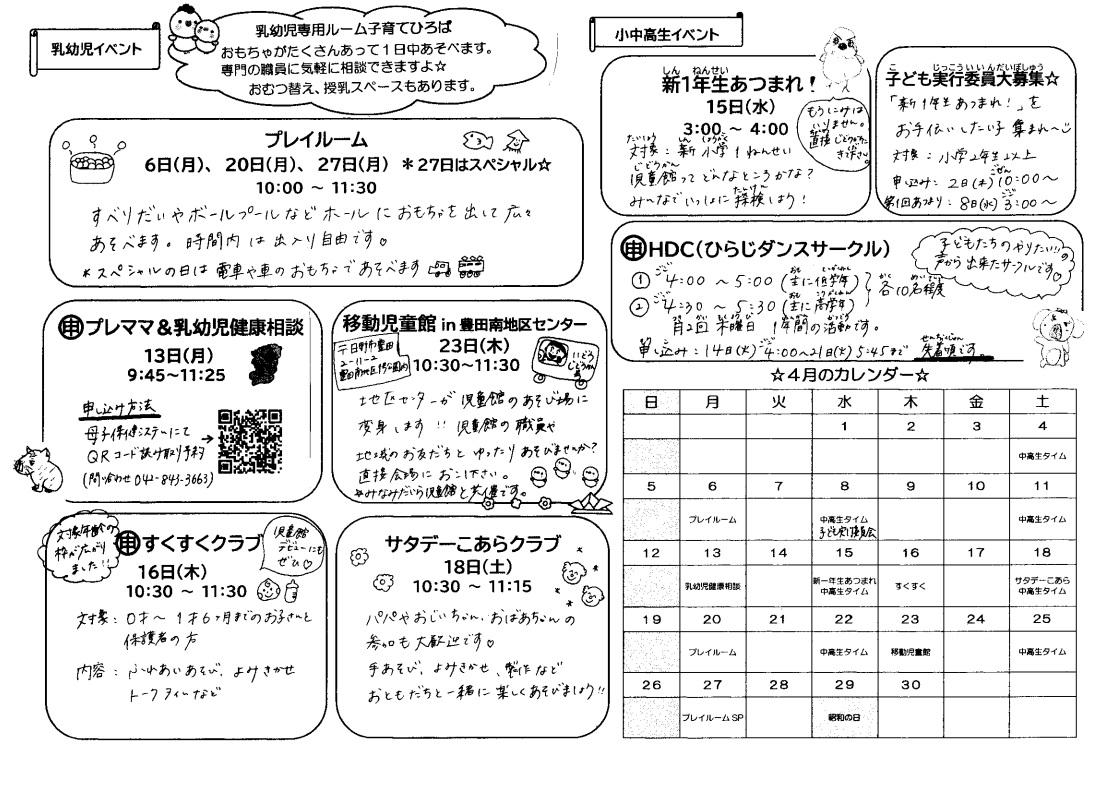 乳幼児イベント
乳幼児専用ルーム子育てひろば
おもちゃがたくさんあって１日中あそべます。
専門の職員に気軽に相談できますよ☆
おむつ替え、授乳スペースもあります。
プレイルーム
6日(月)、20日(月)、27日(月) ＊27日はスペシャル☆
10:00 ～ 11:30
すべりだいやボールプールなどホールにおもちゃを出して広々
あそべます。時間内は出入り自由です♡
＊スペシャルの日は電車や車のおもちゃであそべます
申プレママ＆乳幼児健康相談
13日(月)
9:45～11:25
申し込み方法
母子保健システムにて
QRコード読み取り予約
(問い合わせ042-843-3663)
移動児童館 in 豊田南地区センター
23日(木)
10:30～11:30
〒日野市豊田
2-11-2
豊田南地区1号公園内
いどう
じどうかん
号
地区センターが児童館のあそび場に
変身します!! 児童館の職員や
地域のお友だちとゆったりあそびませんか?
直接会場にお越し下さい。
＊みなみだいら児童館と共催です。
対象年齢の
枠が広がり
ました!!
申すくすくクラブ
児童館
デビューにも
ぜひ♡
16日(木)
10:30 ～ 11:30
対象：0才～1才6ヶ月までのお子さんと
保護者の方
内容：ふれあいあそび、よみきかせ
トークタイムなど
サタデーこあらクラブ
18日(土)
10:30 ～ 11:15
パパやおじいちゃん、おばあちゃんの
参加も大歓迎です♡
手あそび、よみきかせ、製作など
おともだちと一緒に楽しくあそびましょう!!
小中高生イベント
しん ねんせい
新1年生あつまれ！
15日(水)
3:00 ～ 4:00
もうしこみは
いりません。
直接じどうかんに
きてださい。
たいしょう しん しょうがく
対象：新 小学1ねんせい
じどうかん
児童館ってどんなところかな?
たんけん
みーんなでいっしょに探検しよう!
こ じっこういいんだいぼしゅう
子ども実行委員大募集☆
「新1年生あつまれ！」を
お手伝いしたい子 集まれ～
対象：小学2年生以上
ごぜん
申し込み：2日(木)10:00～
ごご
第1回あつまり：8日(水)3:00～
申HDC(ひらじダンスサークル)
子どもたちのやりたい!!の
声から出来たサークルです♡
① ごご4:00 ～ 5:00 (主に低学年)
② ごご4:30 ～ 5:30 (主に高学年)
各10名程度
月2回 木曜日 1年間の活動です。
申し込み：14日(火)ごご4:00～21日(火)5:45まで 先着順です。
☆４月のカレンダー☆
日 月 火 水 木 金 土
1 2 3 4
中高生タイム
5 6 7 8 9 10 11
プレイルーム 中高生タイム 子ども実行委員会 中高生タイム
12 13 14 15 16 17 18
乳幼児健康相談 新一年生あつまれ 中高生タイム すくすく サタデーこあら 中高生タイム
19 20 21 22 23 24 25
プレイルーム 中高生タイム 移動児童館 中高生タイム
26 27 28 29 30
プレイルームSP 昭和の日